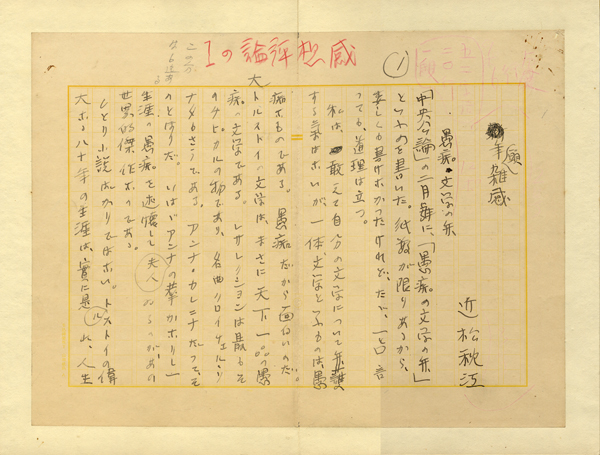 感想評論の1
(1)
偏人雑感
近松秋江
愚痴文学の弁
「中央公論」の二月号に、「愚痴の文学の弁」
といふのを書いた。紙数が限りあるから、
委しくも書けなかつたけれど、たゞ、一口 言
つても、道理は立つ。
私は、敢えて自分の文学について弁
する気はないが、一体文学といふものは、愚
痴なものである。愚痴だから面白いのだ。
大トルストイの文学は、まさに天下一の愚
痴の文学である。レザレクションは最もそ
のチピカルの物であり、名曲クロイツェル・ソ
ナタもさうである。アンナ・カレニナだつて、そ
のとほりだ。いはゞアンナの
生涯の愚痴を述懐して 夫人 ゐるのが、あの
世界的傑作なのである。
ひとり小説ばかりではない。トルストイの偉
大なる八十年の生涯は、実に是れ、人生